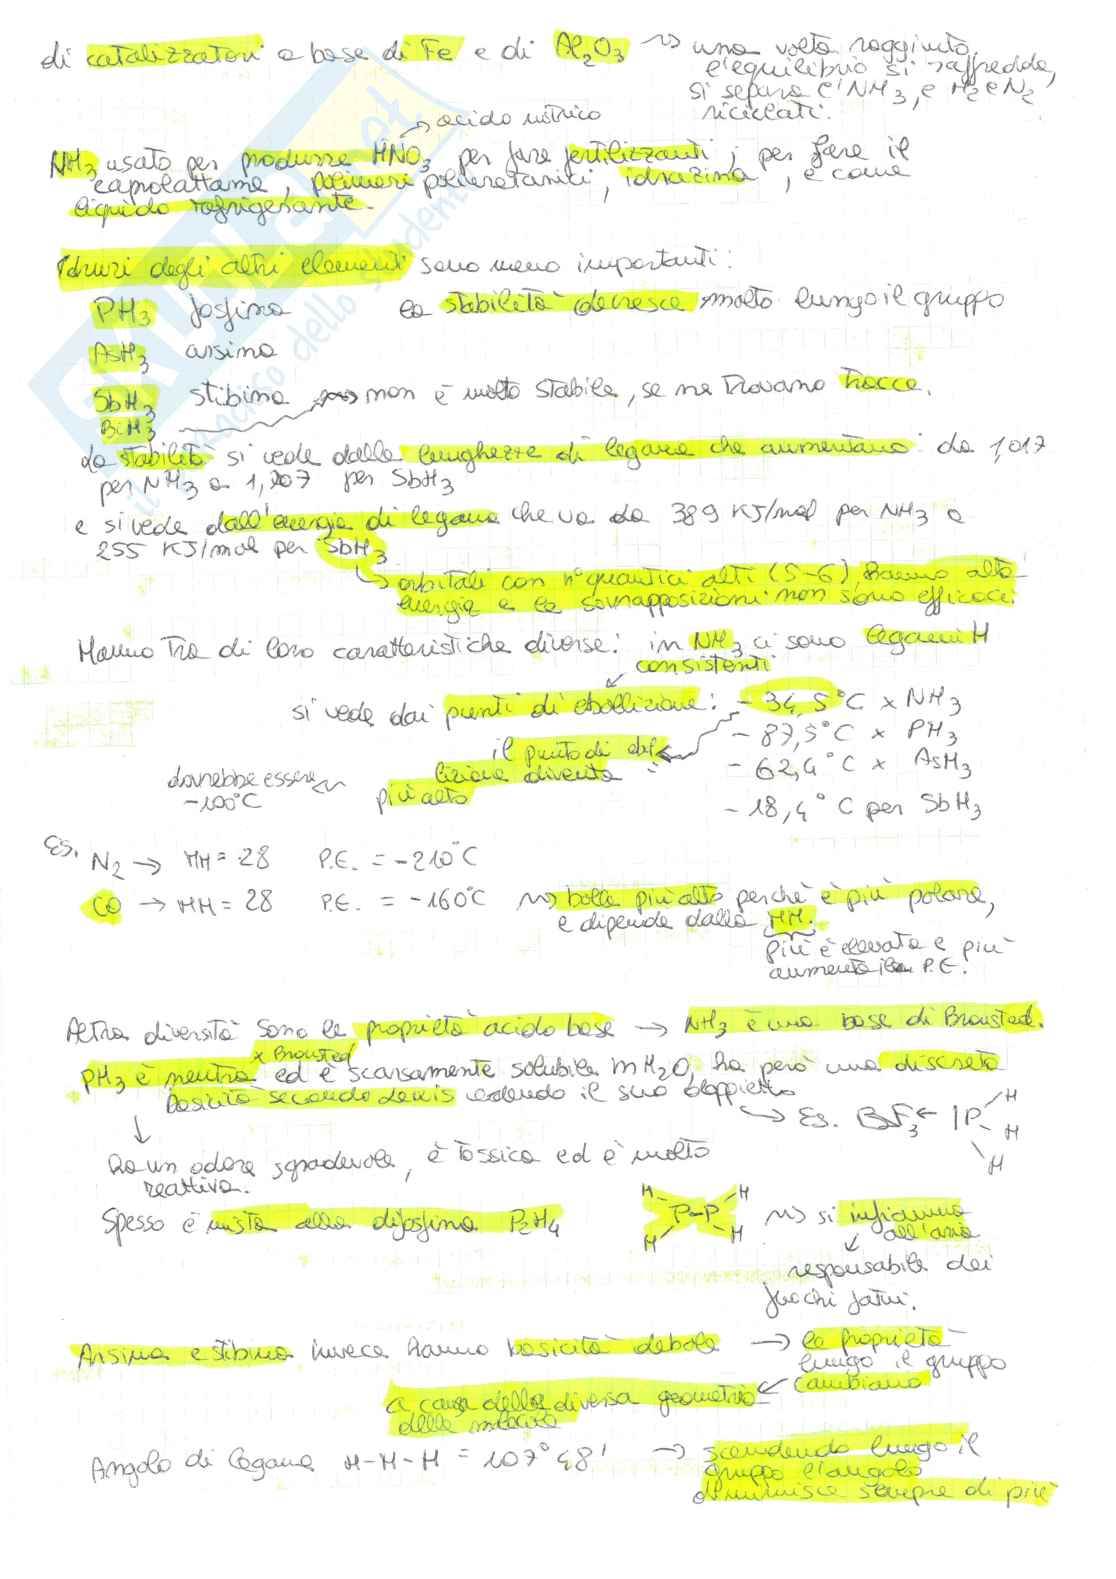 di catalizzatori a base di Fe e di Al2O3 ~> una volta raggiunto
l'equilibrio si raffredda,
si separa l'NH3, e H2 e N2
riciclati.
→ acido nitrico
NH3 usato per produrre HNO3 per fare fertilizzanti, per fare il
caprolattame, polimeri poliuretanici, idrazina, e come
liquido refrigerante.
Idruri degli altri elementi sono meno importanti:
PH3 fosfina la stabilità decresce molto lungo il gruppo
AsH3 arsina
SbH3 stibina ~> non è molto stabile, se ne trovano tracce.
BiH3
La stabilità si vede dalle lunghezze di legame che aumentano da 1,017
per NH3 a 1,707 per SbH3
e si vede dall'energia di legame che va da 389 KJ/mol per NH3 a
255 KJ/mol per SbH3
→ orbitali con n° quantici alti (5-6) hanno alta
energia e le sovrapposizioni non sono efficaci.
Hanno tra di loro caratteristiche diverse: in NH3 ci sono legami H
consistenti
si vede dai punti di ebollizione: - 34,5°C x NH3
- 87,5°C x PH3
il punto di ebol
lizione diventa
più alto
- 62,4°C x AsH3
dovrebbe essere
-100°C
- 18,4°C per SbH3
Es. N2 → MM = 28 P.E. = -210°C
CO → MM = 28 P.E. = -160°C ~> bolle più alto perchè è più polare,
e dipende dalla MM.
più è elevata e più
aumenta il P.E.
Altra diversità sono le proprietà acido base → NH3 è una base di Bronsted.
x Bronsted
PH3 è neutra ed è scarsamente solubile in H2O, ha però una discreta
basicità secondo Lewis cedendo il suo doppietto
→ Es. BF3 ← |P H H H
ha un odore sgradevole, è tossica ed è molto
reattiva.
Spesso è mista alla difosfina P2H4
H H P-P H H
~> si infiamma
all'aria
responsabile dei
fuochi fatui.
Arsina e stibina invece hanno basicità debole → le proprietà
lungo il gruppo
cambiano
a causa della diversa geometria
della molecola
Angolo di legame H-N-H = 107°48' → scendendo lungo il
gruppo l'angolo
diminuisce sempre di più